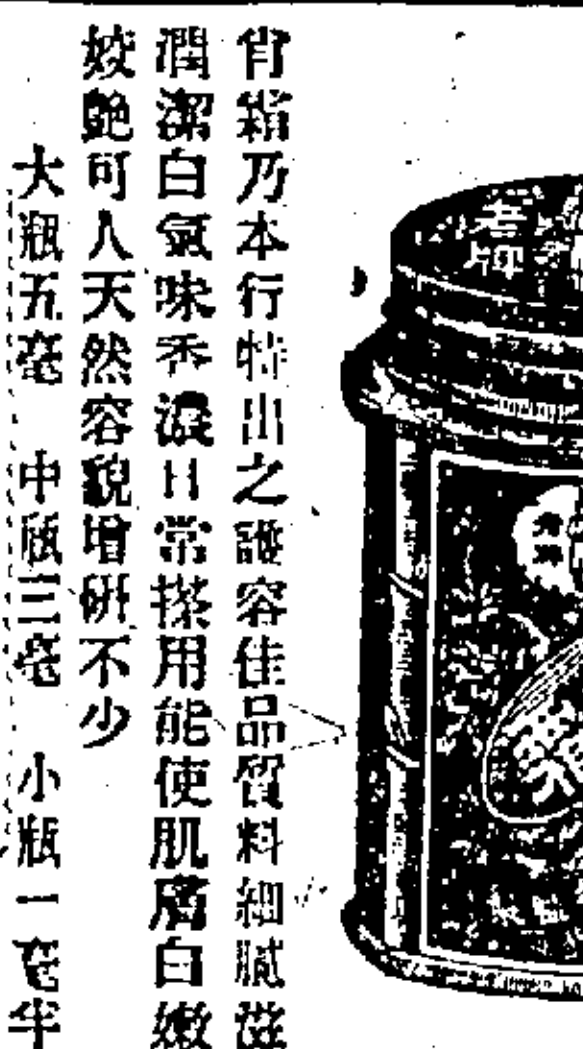 宵箱乃本行特出之護容佳品質料細膩滋
潤潔白氣味香濃日常搽用能使肌膚白嫩
姣艷可人天然容貌增研不少
大瓶五毫 中瓶三毫 小瓶一毫半
老牌